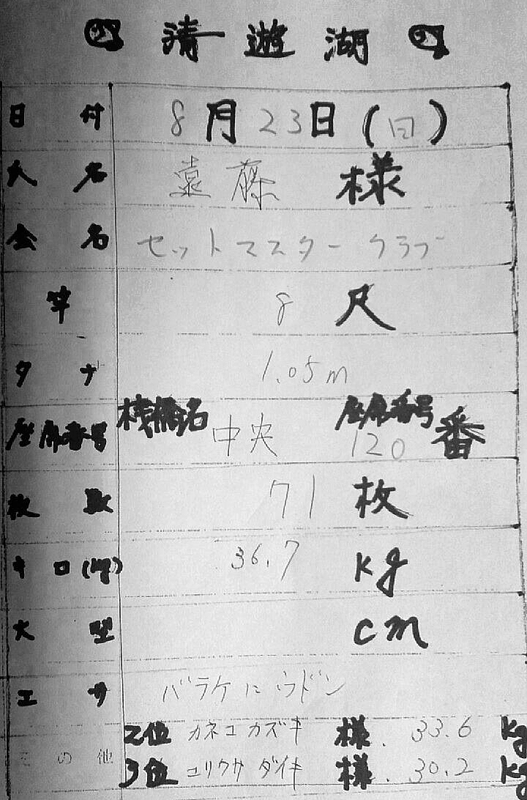 清遊湖
日付 8月23日(日)
人名 遠藤 様
会名 セットマスタークラブ
竿 8 尺
タナ 1.05m
座席番号 桟橋名 中央 座席番号 120 番
枚数 71 枚
キロ(kg) 36.7 kg
大型 cm
エサ バラケにウドン
2位 カネコカズキ 様. 33.6 Kg
その他
3位 ユリクサ ダイキ 様. 30.2 Kg